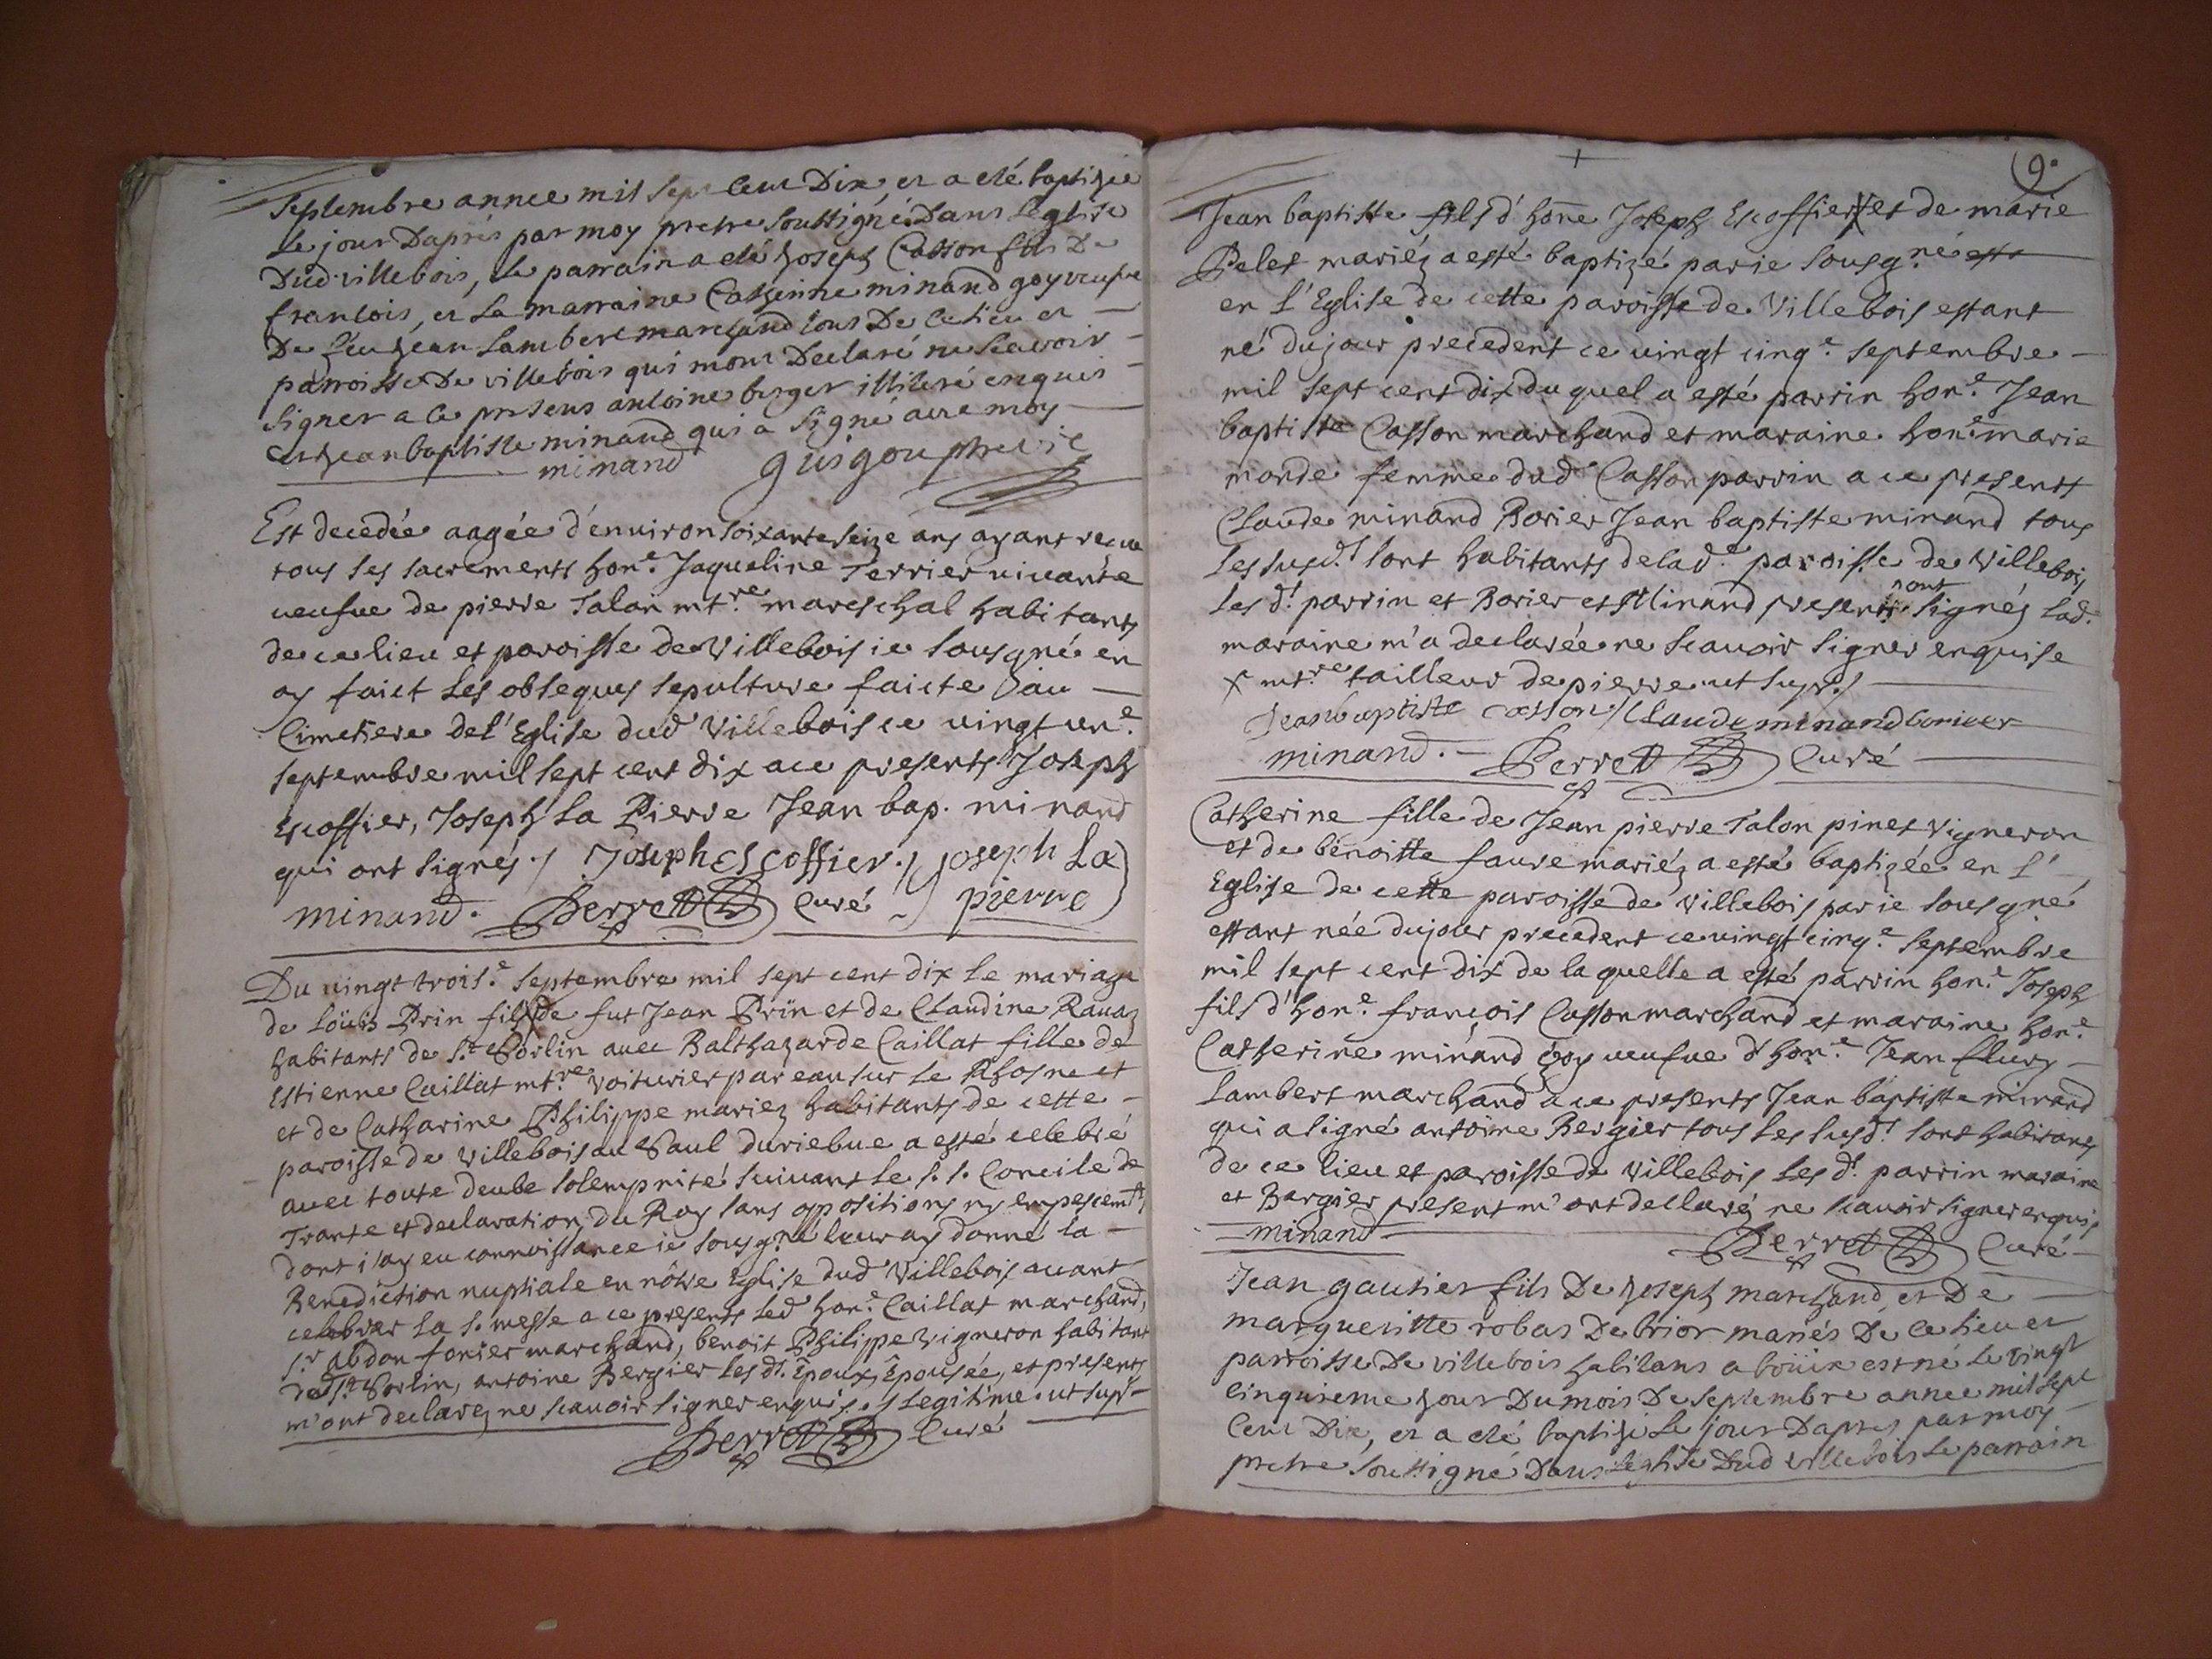 Septembre annee mil sept Cent Dix, et a eté baptizée
Le jour Daprés par moy pretre Soussigné Dans Leglise
Dud villebois, Le parrain a eté Joseph Casson fils De
francois, et La marraine Catherine minand goy veufve
De feu Jean Lambert marchand tous De Ce lieu et
parroisse De villebois qui mont Declaré ne Scavoir
Signer a Ce presens antoine berger illiteré enquis
et Jean baptiste minand qui a Signé avec moy
minand guigou pretre
Est decedée aagée d'enuiron soixante seize ans ayant recue
tous les sacrements hon.e Jaqueline Terrier uiuante
ueufue de pierre Talon mt.re mareschal habitants
de ce lieu et paroisse de Villebois ie sousgné en
ay faict les obseques sepulture faicte au
Cimetiere de l'Eglise dud Villebois ce uingt un.e
septembre mil sept cent dix a ce presents Joseph
Escoffier, Joseph La Pierre Jean bap. minand
qui ont signés ./ Joseph escoffier ./ joseph La
minand. Perret Curé pierre
Du uingt trois.e septembre mil sept cent dix le mariage
de Loüis Prin fils de fut Jean Prin et de Claudine Rauaz
habitants de S.t Sorlin auec Balthazarde Caillat fille de
Estienne Caillat mt.re voiturier par eau sur le Rhosne et
et de Catharine Philippe mariez habitants de cette
paroisse de Villebois au Saul duriebue a esté celebré
auec toute deube solempnité suiuant le s. s. Concile de
Trante et declaration du Roy sans oppositions ny empescemt
dont i'ay eu connoissance ie sousg.né leur ay donné la
Benediction nuptiale en nôtre Eglise dud Villebois auant
celebrer la s. messe a ce presents led hon.e Caillat marchand,
s.r abdon fonier marchand, benoit Philippe vigneron habitant
de S.t Sorlin, antoine Bergier les d.t Epoux, Epousée, et presents
m'ont declarez ne scauoir signer enquis ./ legitime. ut sup.
Perret Curé
9.
Jean baptiste fils d'hone Joseph Escoffier X et de marie
Pelet mariéz a esté baptizé par ie sousg.né
en l'Eglise de cette paroisse de Villebois estant
né du jour precedent ce uingt cinq.e septembre
mil sept cent dix du quel a esté parrin hon.e Jean
baptiste Casson marchand et maraine hon.e marie
monde femme dud Casson parrin a ce presents
Claude minand Borier Jean baptiste minand tous
les susd.t sont habitants de lad.e paroisse de Villebois
les d.t parrin et Borier et Minand presents ont signés lad.
maraine m'a declarée ne scauoir signer enquise
X mt.re tailleur de pierre ut sup./
Jean baptiste casson / Claude minand borieer
minand. Perret Curé
Catherine fille de Jean pierre Talon pinet Vigneron
et de benoitte faure mariéz a esté baptizée en l'
Eglise de cette paroisse de Villebois par ie sousgné
estant née du jour precedent ce uingt cinq.e septembre
mil sept cent dix de la quelle a esté parrin hon.e Joseph
fils d'hon.e françois Casson marchand et maraine hon.e
Catherine minand goy ueufue d'hon.e Jean flury
Lambert marchand a ce presents Jean baptiste minand
qui a signé antoine Bergier tous les susd.t sont habitants
de ce lieu et paroisse de Villebois les d.t parrin maraine
et Bergier present m'ont declaréz ne scauoir signer enquis
minand Perret Curé
Jean gautier fils De Joseph marchand, et De
margueritte robas De brior mariés De Ce lieu et
parroisse De villebois habitans a boüix est né Le vingt
Cinquieme Jour Du mois De Septembre annee mil Sept
Cent Dix, et a eté baptizé Le jour D'apres par moy
pretre Soussigné Dans Leglise Dud villebois Le parrain